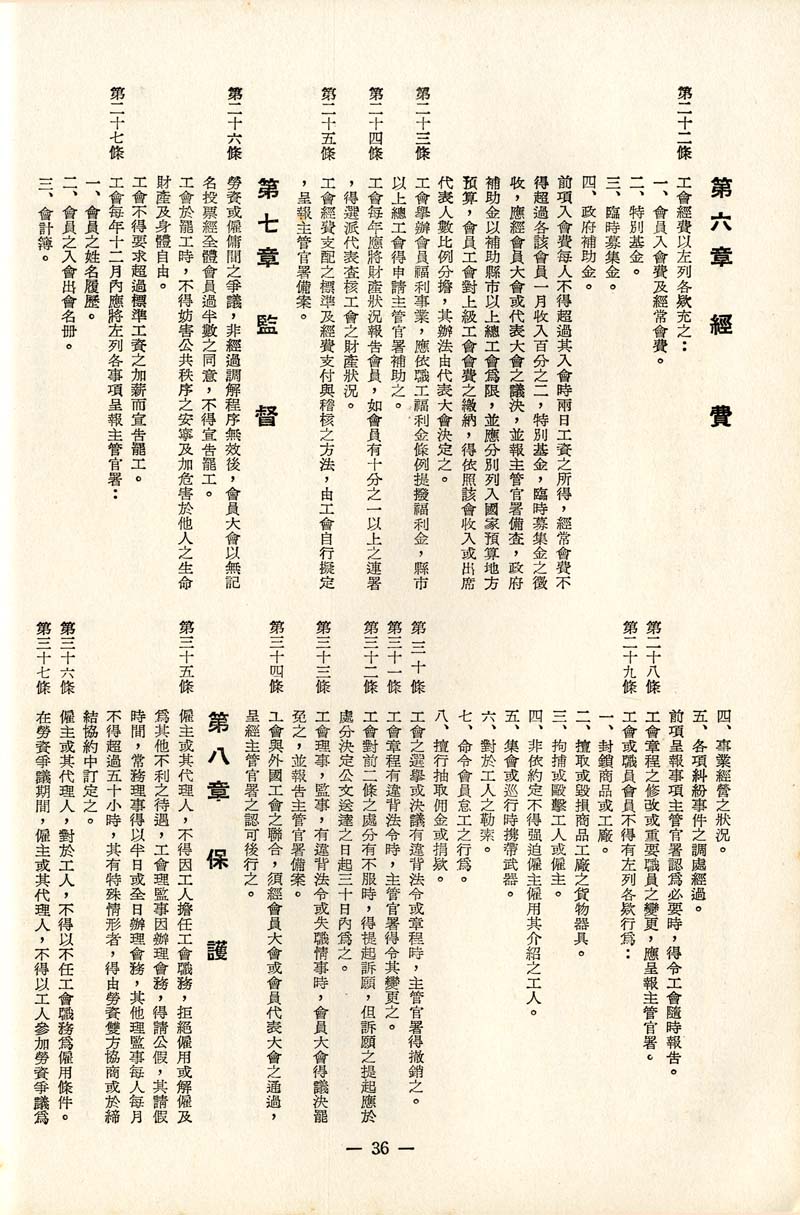 第六章 經 費
第二十二條 工會經費以左列各欵充之：
一、會員入會費及經常會費。
二、特別基金。
三、臨時募集金。
四、政府補助金。
前項入會費每人不得超過其入會時兩日工資之所得，經常會費不
得超過各該會員一月收入百分之二，特別基金，臨時募集金之徵
收，應經會員大會或代表大會之議決，並報主管官署備査，政府
補助金以補助縣市以上總工會爲限，並應分別列入國家預算地方
預算，會員工會對上級工會會費之繳納，得依照該會收入或出席
代表人數比例分擔，其辦法由代表大會決定之。
第二十三條 工會舉辦會員福利事業，應依職工福利金條例提撥福利金，縣市
以上總工會得申請主管官署補助之。
第二十四條 工會每年應將財產狀況報告會員，如會員有十分之一以上之連署
，得選派代表査核工會之財產狀況。
第二十五條 工會經費支配之標準及經費支付與稽核之方法，由工會自行擬定
，呈報主管官署備案。
第七章 監 督
第二十六條 勞資或僱傭間之爭議，非經過調解程序無效後，會員大會以無記
名投票經全體會員過半數之同意，不得宣告罷工。
工會於罷工時，不得妨害公共秩序之安寧及加危害於他人之生命
財產及身體自由。
工會不得要求超過標準工資之加薪而宣告罷工。
第二十七條 工會每年十二月內應將左列各事項呈報主管官署：
一、會員之姓名履歷。
二、會員之入會出會名册。
三、會計簿。
四、事業經營之狀況。
五、各項糾紛事件之調處經過。
前項呈報事項主管官署認爲必要時，得令工會隨時報告。
第二十八條 工會章程之修改或重要職員之變更，應呈報主管官署。
第二十九條 工會或職員會員不得有左列各欵行爲：
一、封鎖商品或工廠。
二、擅取或毀損商品工廠之貨物器具。
三、拘捕或毆擊工人或僱主。
四、非依約定不得强迫僱主僱用其介紹之工人。
五、集會或巡行時攜帶武器。
六、對於工人之勒索。
七、命令會員怠工之行爲。
八、擅行抽取佣金或捐欵。
第三十條 工會之選舉或決議有違背法令或章程時，主管官署得撤銷之。
第三十一條 工會章程有違背法令時，主管官署得令其變更之。
第三十二條 工會對前二條之處分有不服時，得提起訴願，但訴願之提起應於
處分決定公文送達之日起三十日內爲之。
第三十三條 工會理事，監事，有違背法令或失職情事時，會員大會得議決罷
免之，並報告主管官署備案。
第三十四條 工會與外國工會之聯合，須經會員大會或會員代表大會之通過，
呈經主管官署之認可後行之。
第八章 保 護
第三十五條 僱主或其代理人，不得因工人擔任工會職務，拒絕僱用或解僱及
爲其他不利之待遇，工會理監事因辦理會務，得請公假，其請假
時間，常務理事得以半日或全日辦理會務，其他理監事每人每月
不得超過五十小時，其有特殊情形者，得由勞資雙方協商或於締
結協約中訂定之。
第三十六條 僱主或其代理人，對於工人，不得以不任工會職務爲僱用條件。
第三十七條 在勞資爭議期間，僱主或其代理人，不得以工人參加勞資爭議爲
— 36 —